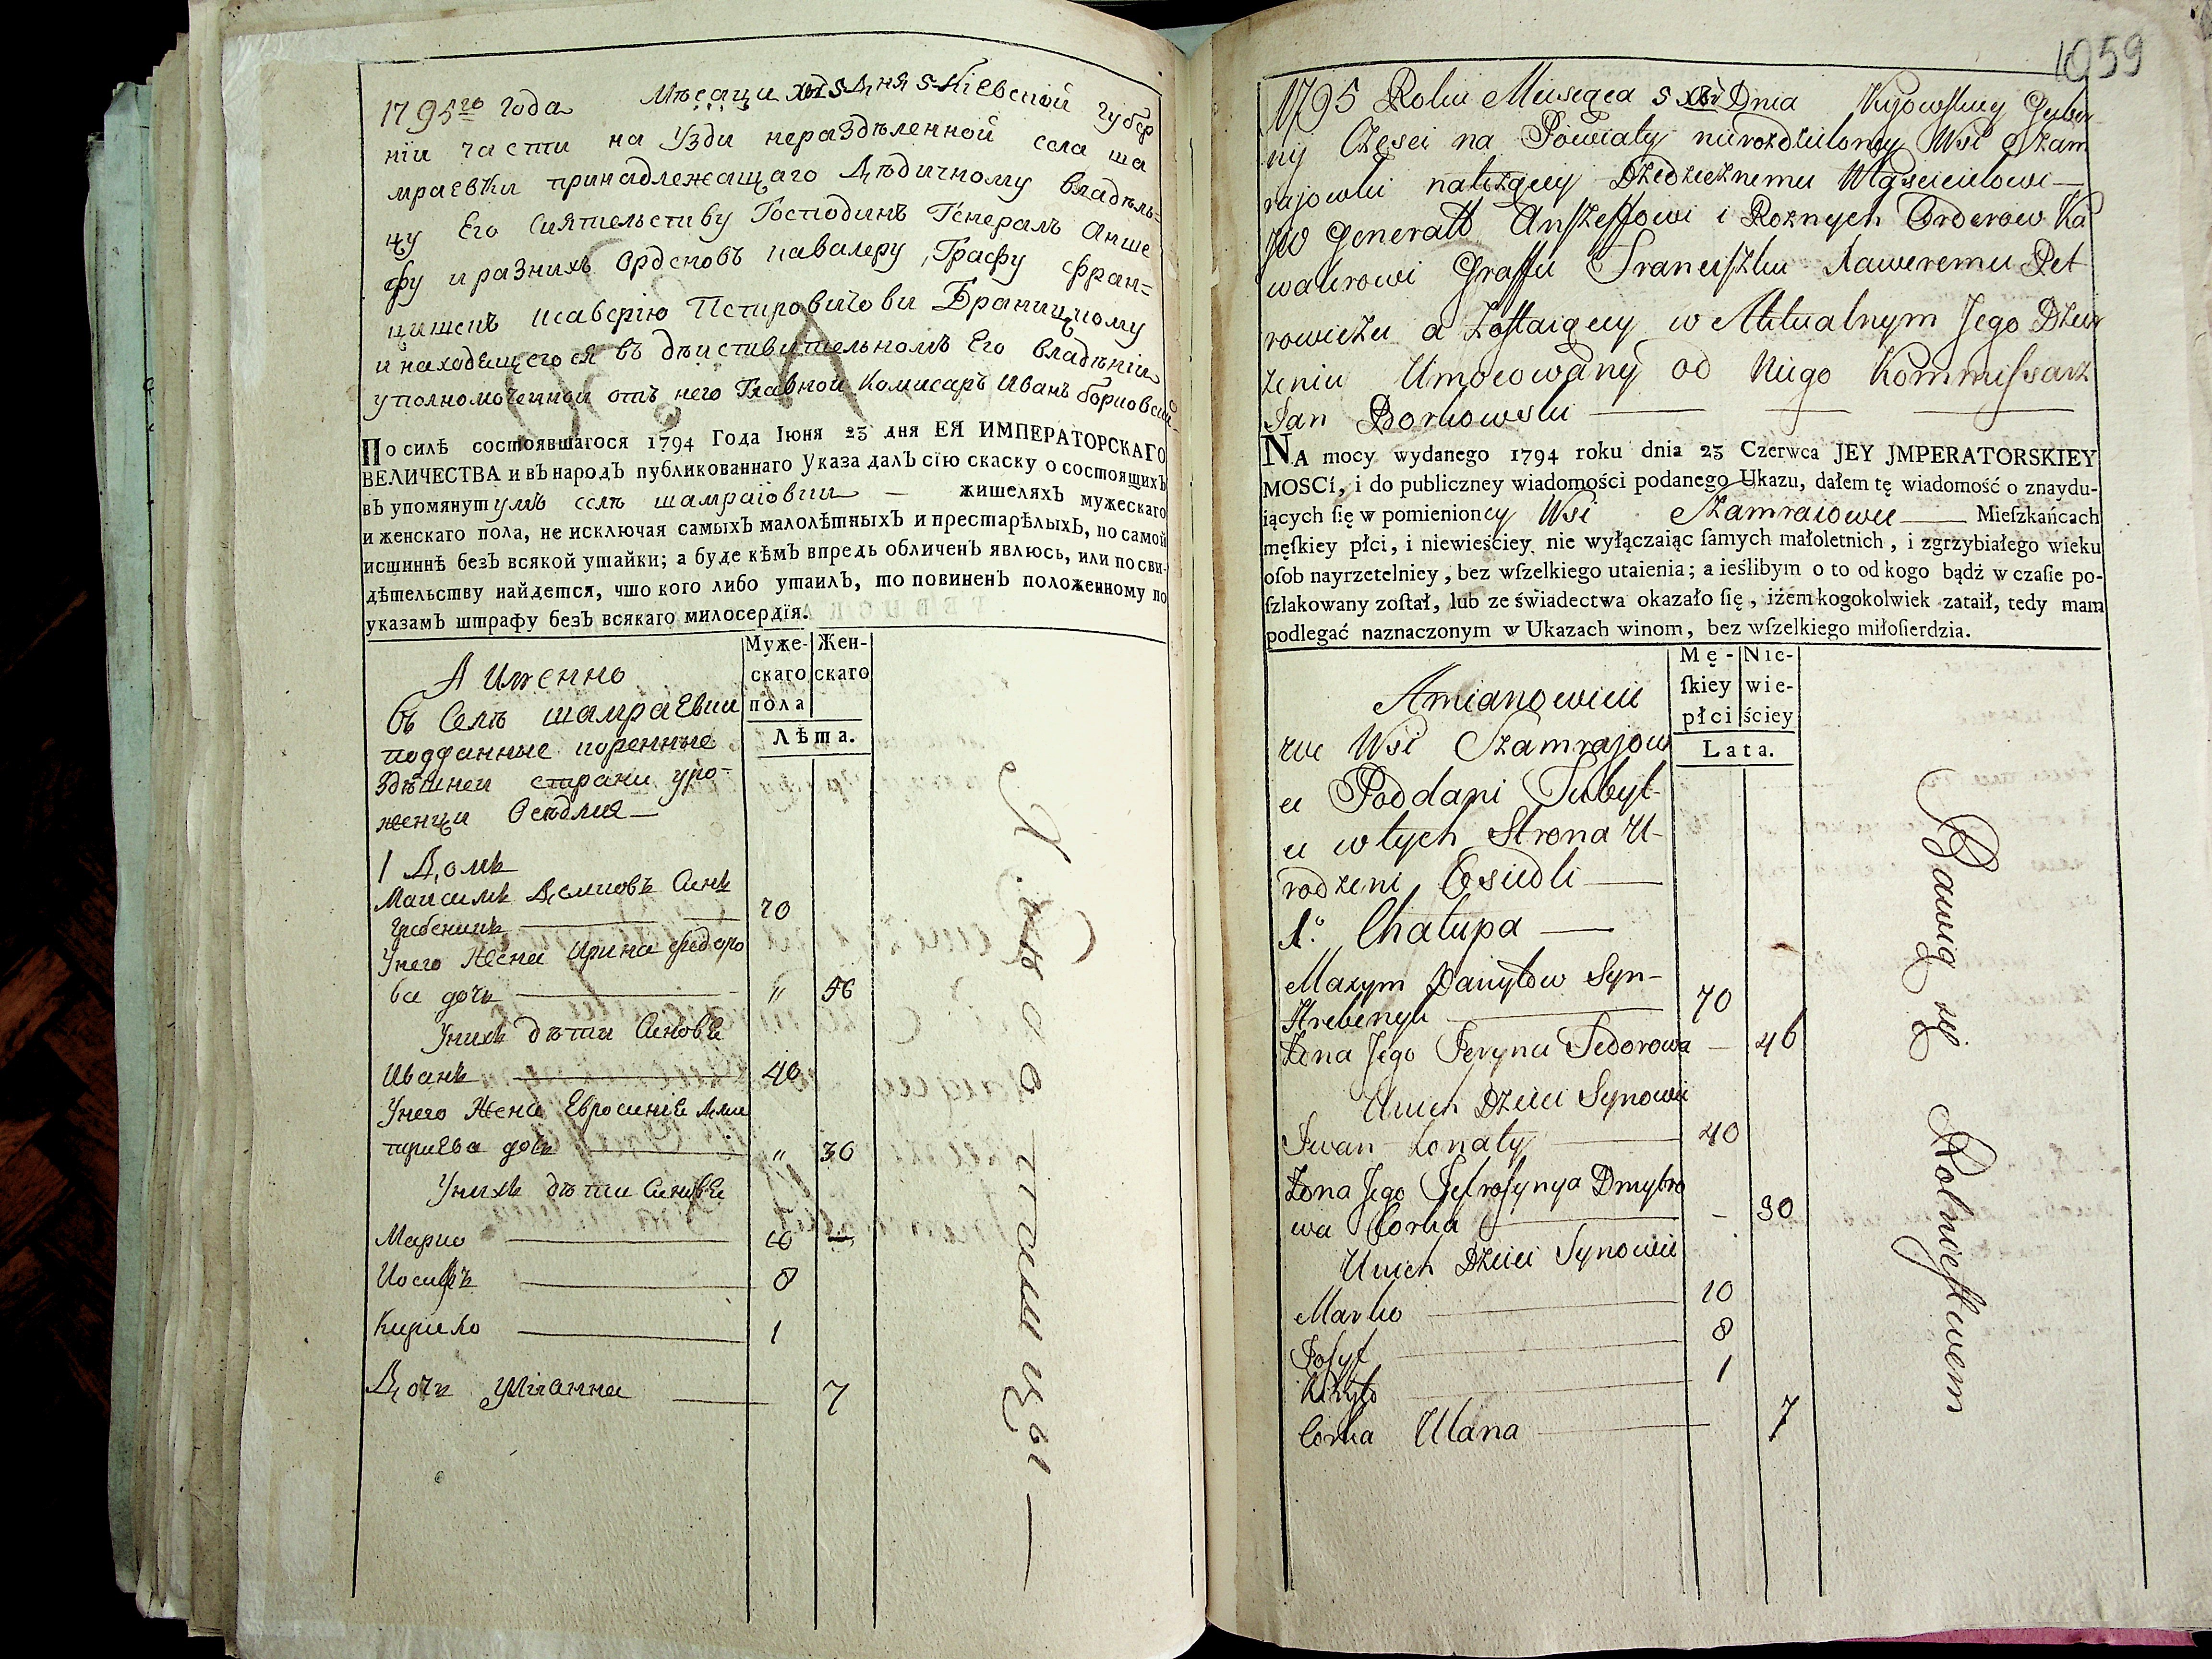 1795го года Мѣсаци дня Кіевской губер
ніи части на Узди нераздѣленной села ша
мраевки принадлежащаго Дѣдичному владѣль=
цу Его Сиятельству Господинъ Генералъ Анше
фу и разнихъ Орденовъ кавалеру, Графу Фран=
цишекъ Ксаверію Петровичови Браницкому
и находящегося въ дѣиствительномъ Его владѣніи
уполномоченной отъ него Главной Комисаръ Иванъ борковский
По силѣ состоявшагося 1794 Года Іюня 23 дня ЕЯ ИМПЕРАТОРСКАГО
ВЕЛИЧЕСТВА и въ народъ публикованнаго Указа далъ сїю скаску о состоящихъ
въ упомянутумъ селѣ шамраіовки — жителяхъ мужескаго
и женскаго пола, не исключая самыхъ малолѣтныхъ и престарѣлыхъ, по самой
истиннѣ безъ всякой утайки; а буде кѣмъ впредь обличенъ явлюсь, или по сви-
дѣтельству найдется, что кого либо утаилъ, то повиненъ положенному по
указамъ штрафу безъ всякаго милосердїя.
Муже- Жен-
скаго скаго
пола
Лѣта.
А Именно
Въ Селѣ шамраевки
подданные коренные
здѣшней страни уро-
женци Осѣдлия —
1 Домъ
Максимъ Демковъ Синъ
Гребеникъ — 70
Унего Жена Ирина федоро
ва дочь — " 56
Унихъ дѣти Синовѣ
Иванъ — 40
Унего Жена Евросиніѣ Дми
триева дочь — " 30
Унихъ дѣти Синовѣ
Марко — 10
Иосифъ — 8
Кирило — 1
Дочь Улианна — 7
1059
1795 Roku Miesięca Dnia Kijowskiey Guber
nij Części na Powiaty nierozdzieloney Wsi Szam
rajowki należącey Dziedzicznemu Właścicielowi —
JW Generałł Anszeffowi i Roznych Orderow Ka
walirowi Graffu Franciszku Xaweremu Pet
rowiczu a Zostaiącey w Aktualnym Jego Dzier
żeniu Umocowany od Niego Kommissarz
Jan Borkowski —
NA mocy wydanego 1794 roku dnia 23 Czerwca JEY JMPERATORSKIEY
MOSCİ, i do publiczney wiadomości podanego Ukazu, dałem tę wiadomość o znaydu-
iących ſię w pomienioney Wsi Szamraiowce — Mieſzkańcach
męſkiey płci, i niewieściey nie wyłączaiąc ſamych małoletnich, i zgrzybiałego wieku
oſob nayrzetelniey, bez wſzelkiego utaienia; a ieślibym o to od kogo bądź w czaſie po-
ſzlakowany zoſtał, lub ze świadectwa okazało ſię, iżem kogokolwiek zataił, tedy mam
podlegać naznaczonym w Ukazach winom, bez wſzelkiego miłoſierdzia.
Mę- Nie-
ſkiey wie-
płci ściey
Lata.
Amianowicie
we Wsi Szamrajow
ci Poddani Tubyl-
ci w tych Strona U-
rodzeni Osiedli —
1o Chałupa —
Maxym Daniłow Syn —
Hrebenyk — 70
Żona Jego Jeryna Fedorowa — 46
Unich Dzieci Synowie
Iwan Żonaty — 40
Żona Jego Jefrosynya Dmytro
wa Corka — 30
Unich Dzieci Synowie
Marko — 10
Josyf — 8
Kiryło — 1
Corka Ulana — 7
Bawią się Rolnictwem